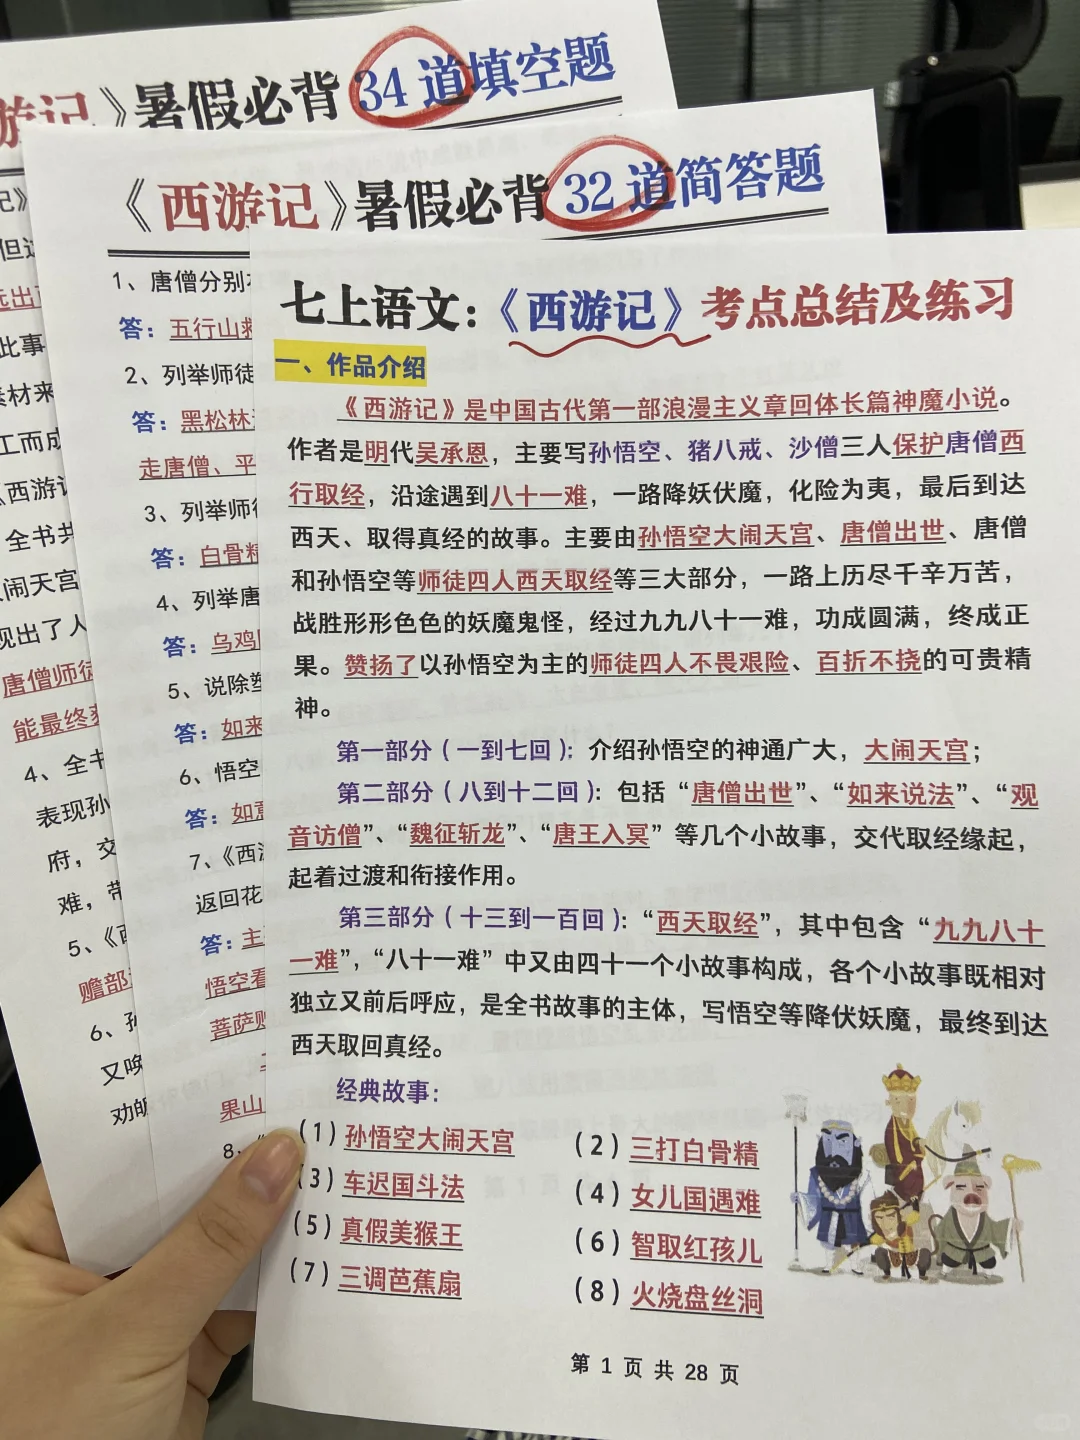 游记》暑假必背34道填空题
《西游记》暑假必背32道简答题
七上语文：《西游记》考点总结及练习
一、作品介绍
《西游记》是中国古代第一部浪漫主义章回体长篇神魔小说。
作者是明代吴承恩，主要写孙悟空、猪八戒、沙僧三人保护唐僧西
行取经，沿途遇到八十一难，一路降妖伏魔，化险为夷，最后到达
西天、取得真经的故事。主要由孙悟空大闹天宫、唐僧出世、唐僧
和孙悟空等师徒四人西天取经等三大部分，一路上历尽千辛万苦，
战胜形形色色的妖魔鬼怪，经过九九八十一难，功成圆满，终成正
果。赞扬了以孙悟空为主的师徒四人不畏艰险、百折不挠的可贵精
神。
第一部分（一到七回）：介绍孙悟空的神通广大，大闹天宫；
第二部分（八到十二回）：包括“唐僧出世”、“如来说法”、“观
音访僧”、“魏征斩龙”、“唐王入冥”等几个小故事，交代取经缘起，
起着过渡和衔接作用。
第三部分（十三到一百回）：“西天取经”，其中包含“九九八十
一难”，“八十一难”中又由四十一个小故事构成，各个小故事既相对
独立又前后呼应，是全书故事的主体，写悟空等降伏妖魔，最终到达
西天取回真经。
经典故事：
（1）孙悟空大闹天宫 （2）三打白骨精
（3）车迟国斗法 （4）女儿国遇难
（5）真假美猴王 （6）智取红孩儿
（7）三调芭蕉扇 （8）火烧盘丝洞
第 1 页 共 28 页
1、唐僧分别
答：五行山
2、列举师徒
答：黑松林
走唐僧、平
3、列举师
答：白骨精
4、列举唐
答：乌鸡
5、说除
答：如来
6、悟空
答：如意
7、《西游
返回花
答：主
悟空看
菩萨
果山
8、
记》
但这
选出
此事
素材来
工而成
《西游记
全书共
闹天宫
现出了人
唐僧师徒
能最终
4、全书
表现孙
府，交
难，带
5、《西
赡部
6、孙
又唤
劝